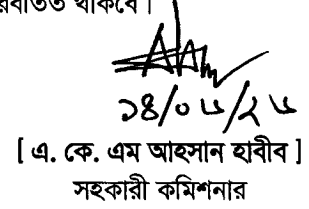 থাকবে।
১৪/০৬/২৬
[ এ. কে. এম আহসান হাবীব ]
সহকারী কমিশনার